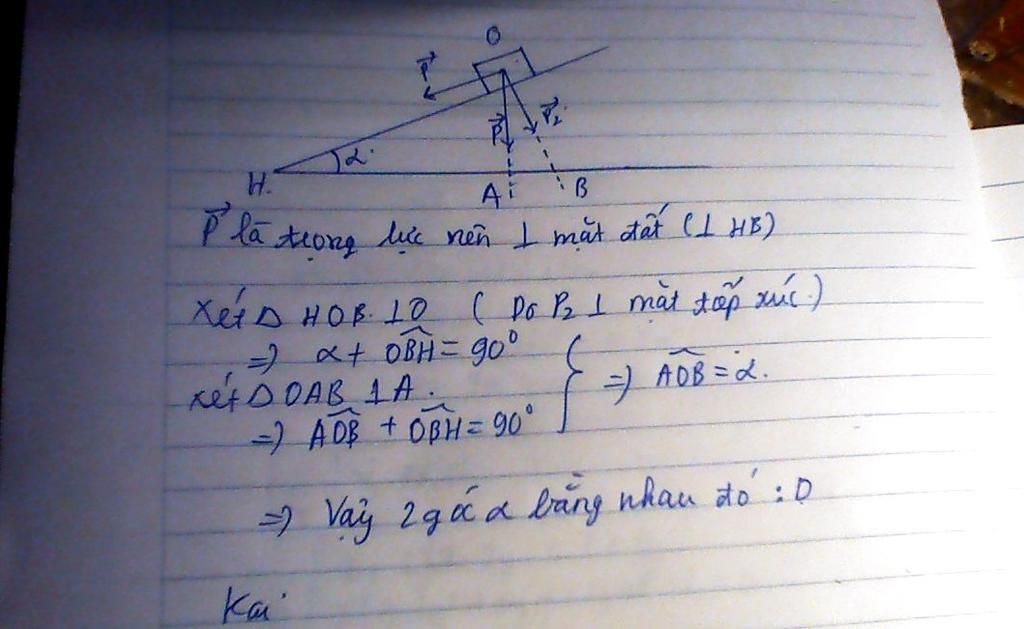 O
P⃗
P⃗
P⃗₂
α
H.
A
B
P⃗ là trọng lực nên ⊥ mặt đất (⊥ HB)
Xét Δ HOB ⊥ O ( Do P₂ ⊥ mặt tiếp xúc.)
=> α + OBH^ = 90°
xét Δ OAB ⊥ A.
=> AOB^ + OBH^ = 90°
} => AOB^ = α.
=> Vậy 2 góc α bằng nhau đó :D
Kai